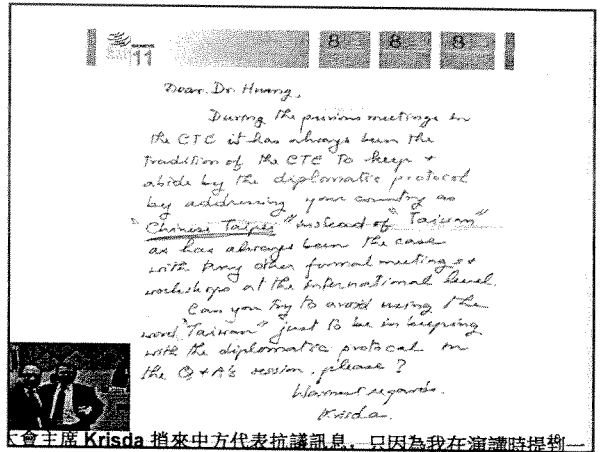 11 8 8 8
Dear Dr. Huang,
During the previous meetings in
the CTC it has always been the
tradition of the CTC to keep +
abide by the diplomatic protocol
by addressing your country as
"Chinese Taipei" instead of "Taiwan"
as has always been the case
with any other formal meetings or
workshops at the international level.
Can you try to avoid using the
word "Taiwan" just to be in keeping
with the diplomatic protocal in
the Q + A's session, please?
Warmest regards.
Krisda.
大會主席 Krisda 捎來中方代表抗議訊息，只因為我在演講時提到一